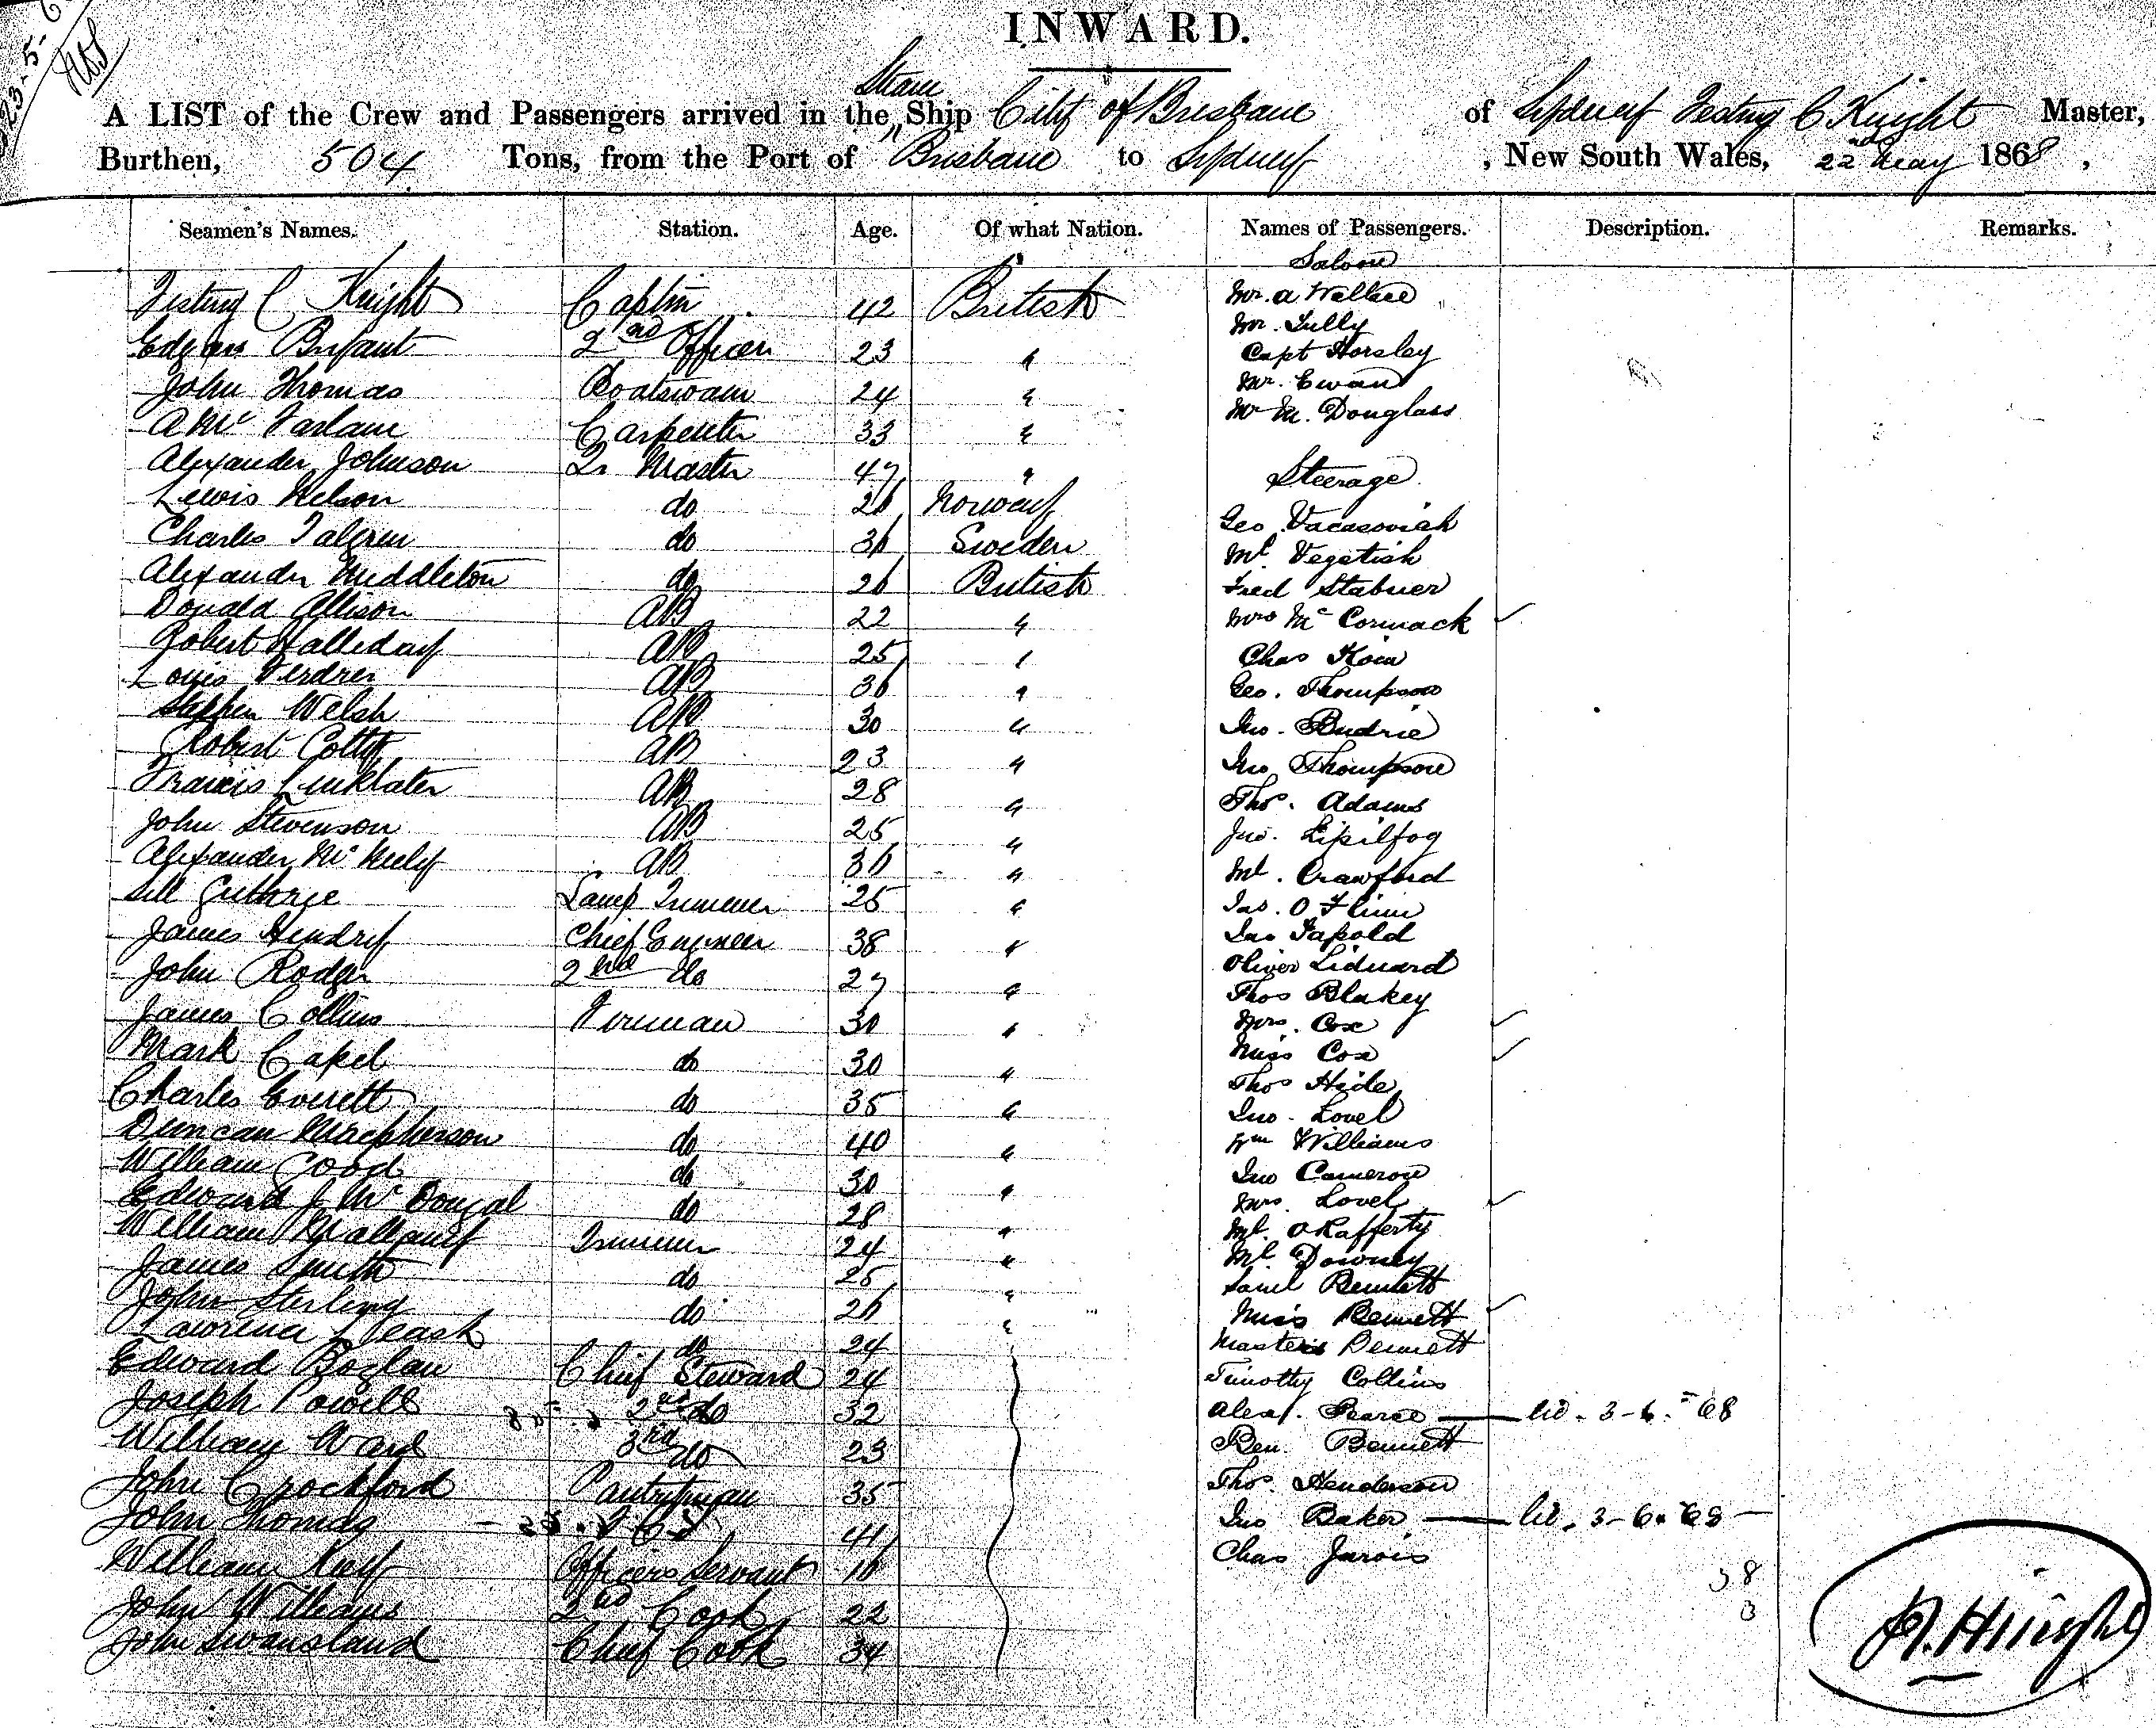 INWARD.
Steam
A LIST of the Crew and Passengers arrived in the Ship City of Brisbane of Sydney Testing C Knight Master,
Burthen, 504 Tons, from the Port of Brisbane to Sydney , New South Wales, 22nd May 1868 ,
Seamen's Names. Station. Age. Of what Nation. Names of Passengers. Description. Remarks.
Saloon
Testing C Knight Captin 42 British Mr. A Wallace
Mr. Tully
Edgar Bryant 2nd Officer 23 " Capt Horsley
John Thomas Boatswain 24 " Mr. Ewan
A McFarlane Carpenter 33 " Mr M. Douglass
Alexander Johnson Qr Master 47 " Steerage
Lewis Nelson do 26 Norway
Charles Talgren do 36 Sweden Geo.
Alexander Middleton do 26 British Ml. Vegetish
Donald Allison AB 22 " Fred Stabner
Robert Halleday AB 25 " Mrs McCormack
Louis Verdren AB 36 " Chas
Stephen Welsh AB 30 " Geo. Thompson
Robert Cotty AB 23 " Jno. Budrie
Francis Linklater AB 28 " Jno Thompson
John Stevenson AB 25 " Thos. Adams
Alexander McNeely AB 36 " Jno. Lipilfog
Guthrie Lamp Trimmer 25 " Ml. Crawford
James Hendry Chief Engineer 38 " Jas. O Flinn
John Rodger 2nd do 27 " Jno Tapold
James Collins Fireman 30 " Oliver Liduard
Mark Capel do 30 " Thos Blakey
Charles Everett do 35 " Mrs. Cox
Duncan Macpherson do 40 " Miss Cox
William Good do 30 " Thos Hide
Edward J McDougal do 28 " Jno. Lovel
William Trimmer 24 " Wm Williams
James Smith do 25 " Jno Cameron
John Sterling do 26 " Mrs. Lovel
Lawrence Leask do 24 " Ml. O Rafferty
Edward Boylan Chief Steward 24 Ml Downey
Joseph Powell 2nd do 32 Saml Bennett
William Ward 3rd do 23 Miss Bennett
John Crockford Pantryman 35 Master Bennett
John Thomas 41 Timothy Collins
William Kay Officers Servant 16 Alex. Pearce 3-6-68
John Williams 2nd Cook 22 Ben. Bennett
John Swansland Chief Cook 34 Thos. Henderson
Jno Baker 3-6-68
Chas Jarvis
38
3